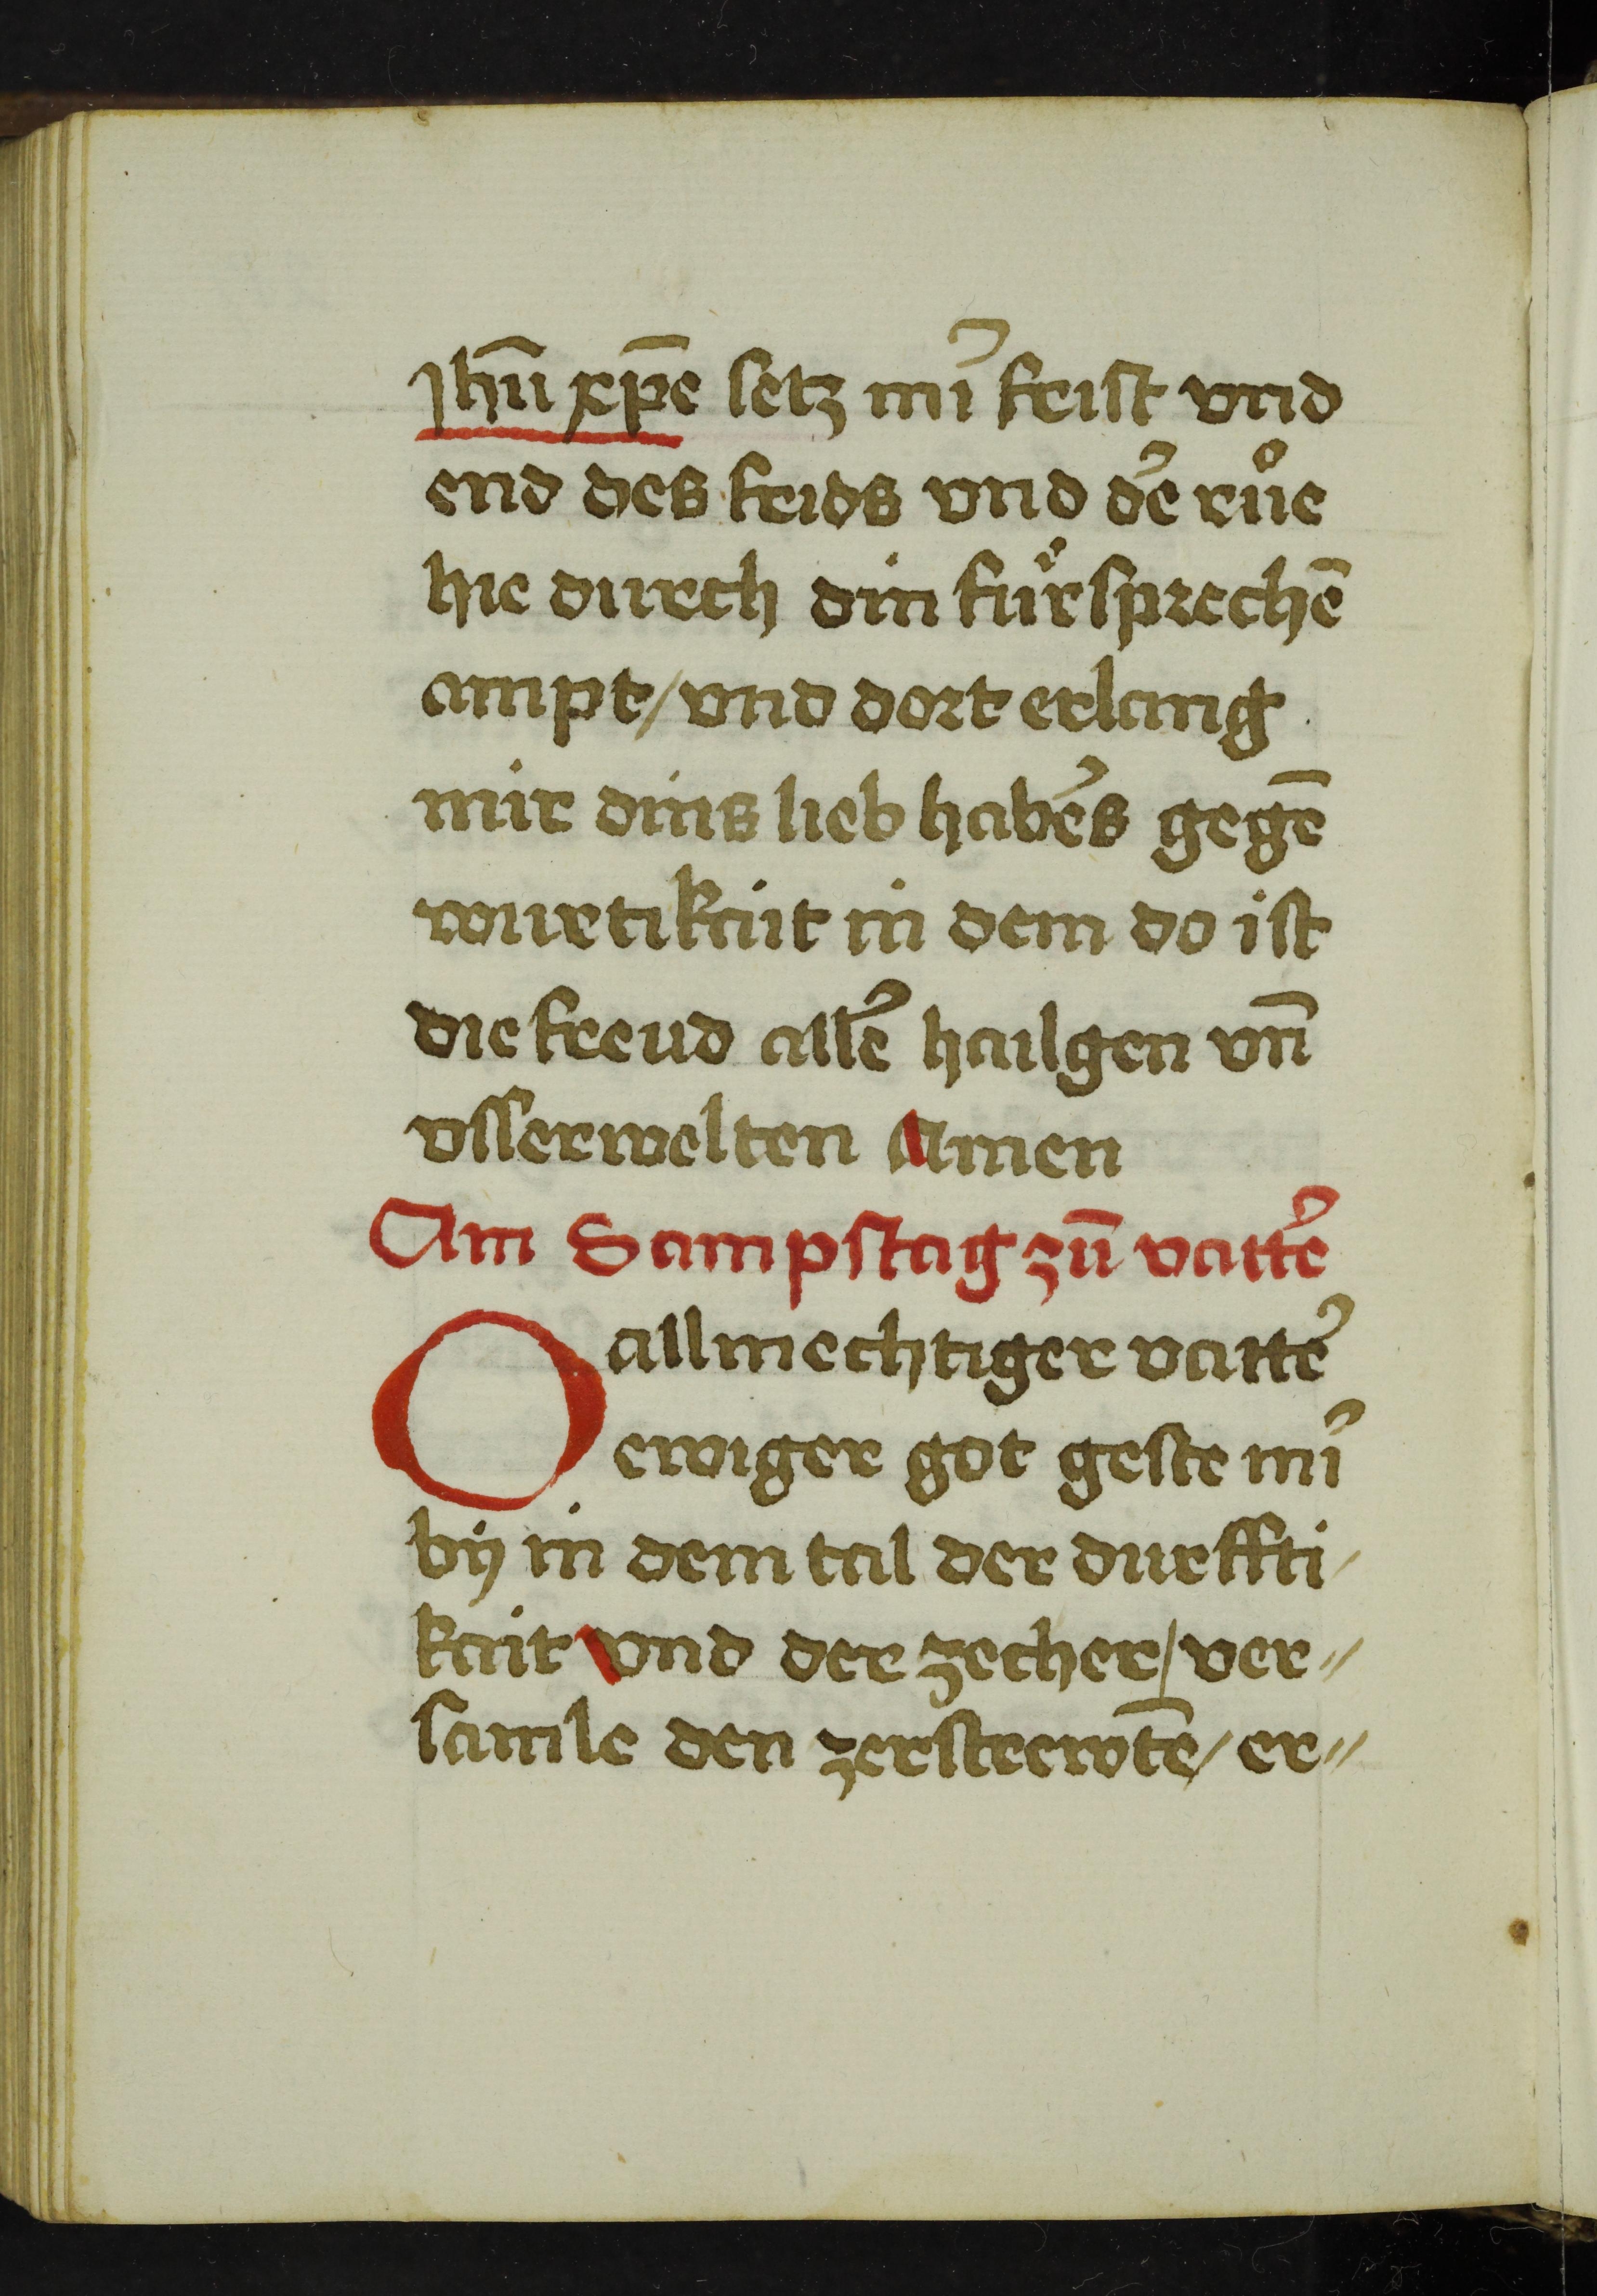 Jhū xp̄e setz mi͛ frist vnd
end des frids vnd de͛ růe
hie durch din fürsprechē
ampt / vnd dort erlang
mir dins lieb habe͛s gegē
wurtikait in dem do ist
die freud alle͛ hailgen vn̄
vsserwelten Amen
Am Sampstag zū vatte͛
O allmechtiger vatte͛
ewiger got geste mi͛
bÿ in dem tal der durffti /
kait vnd der zecher / ver //
samle den zerstrewtē / er //